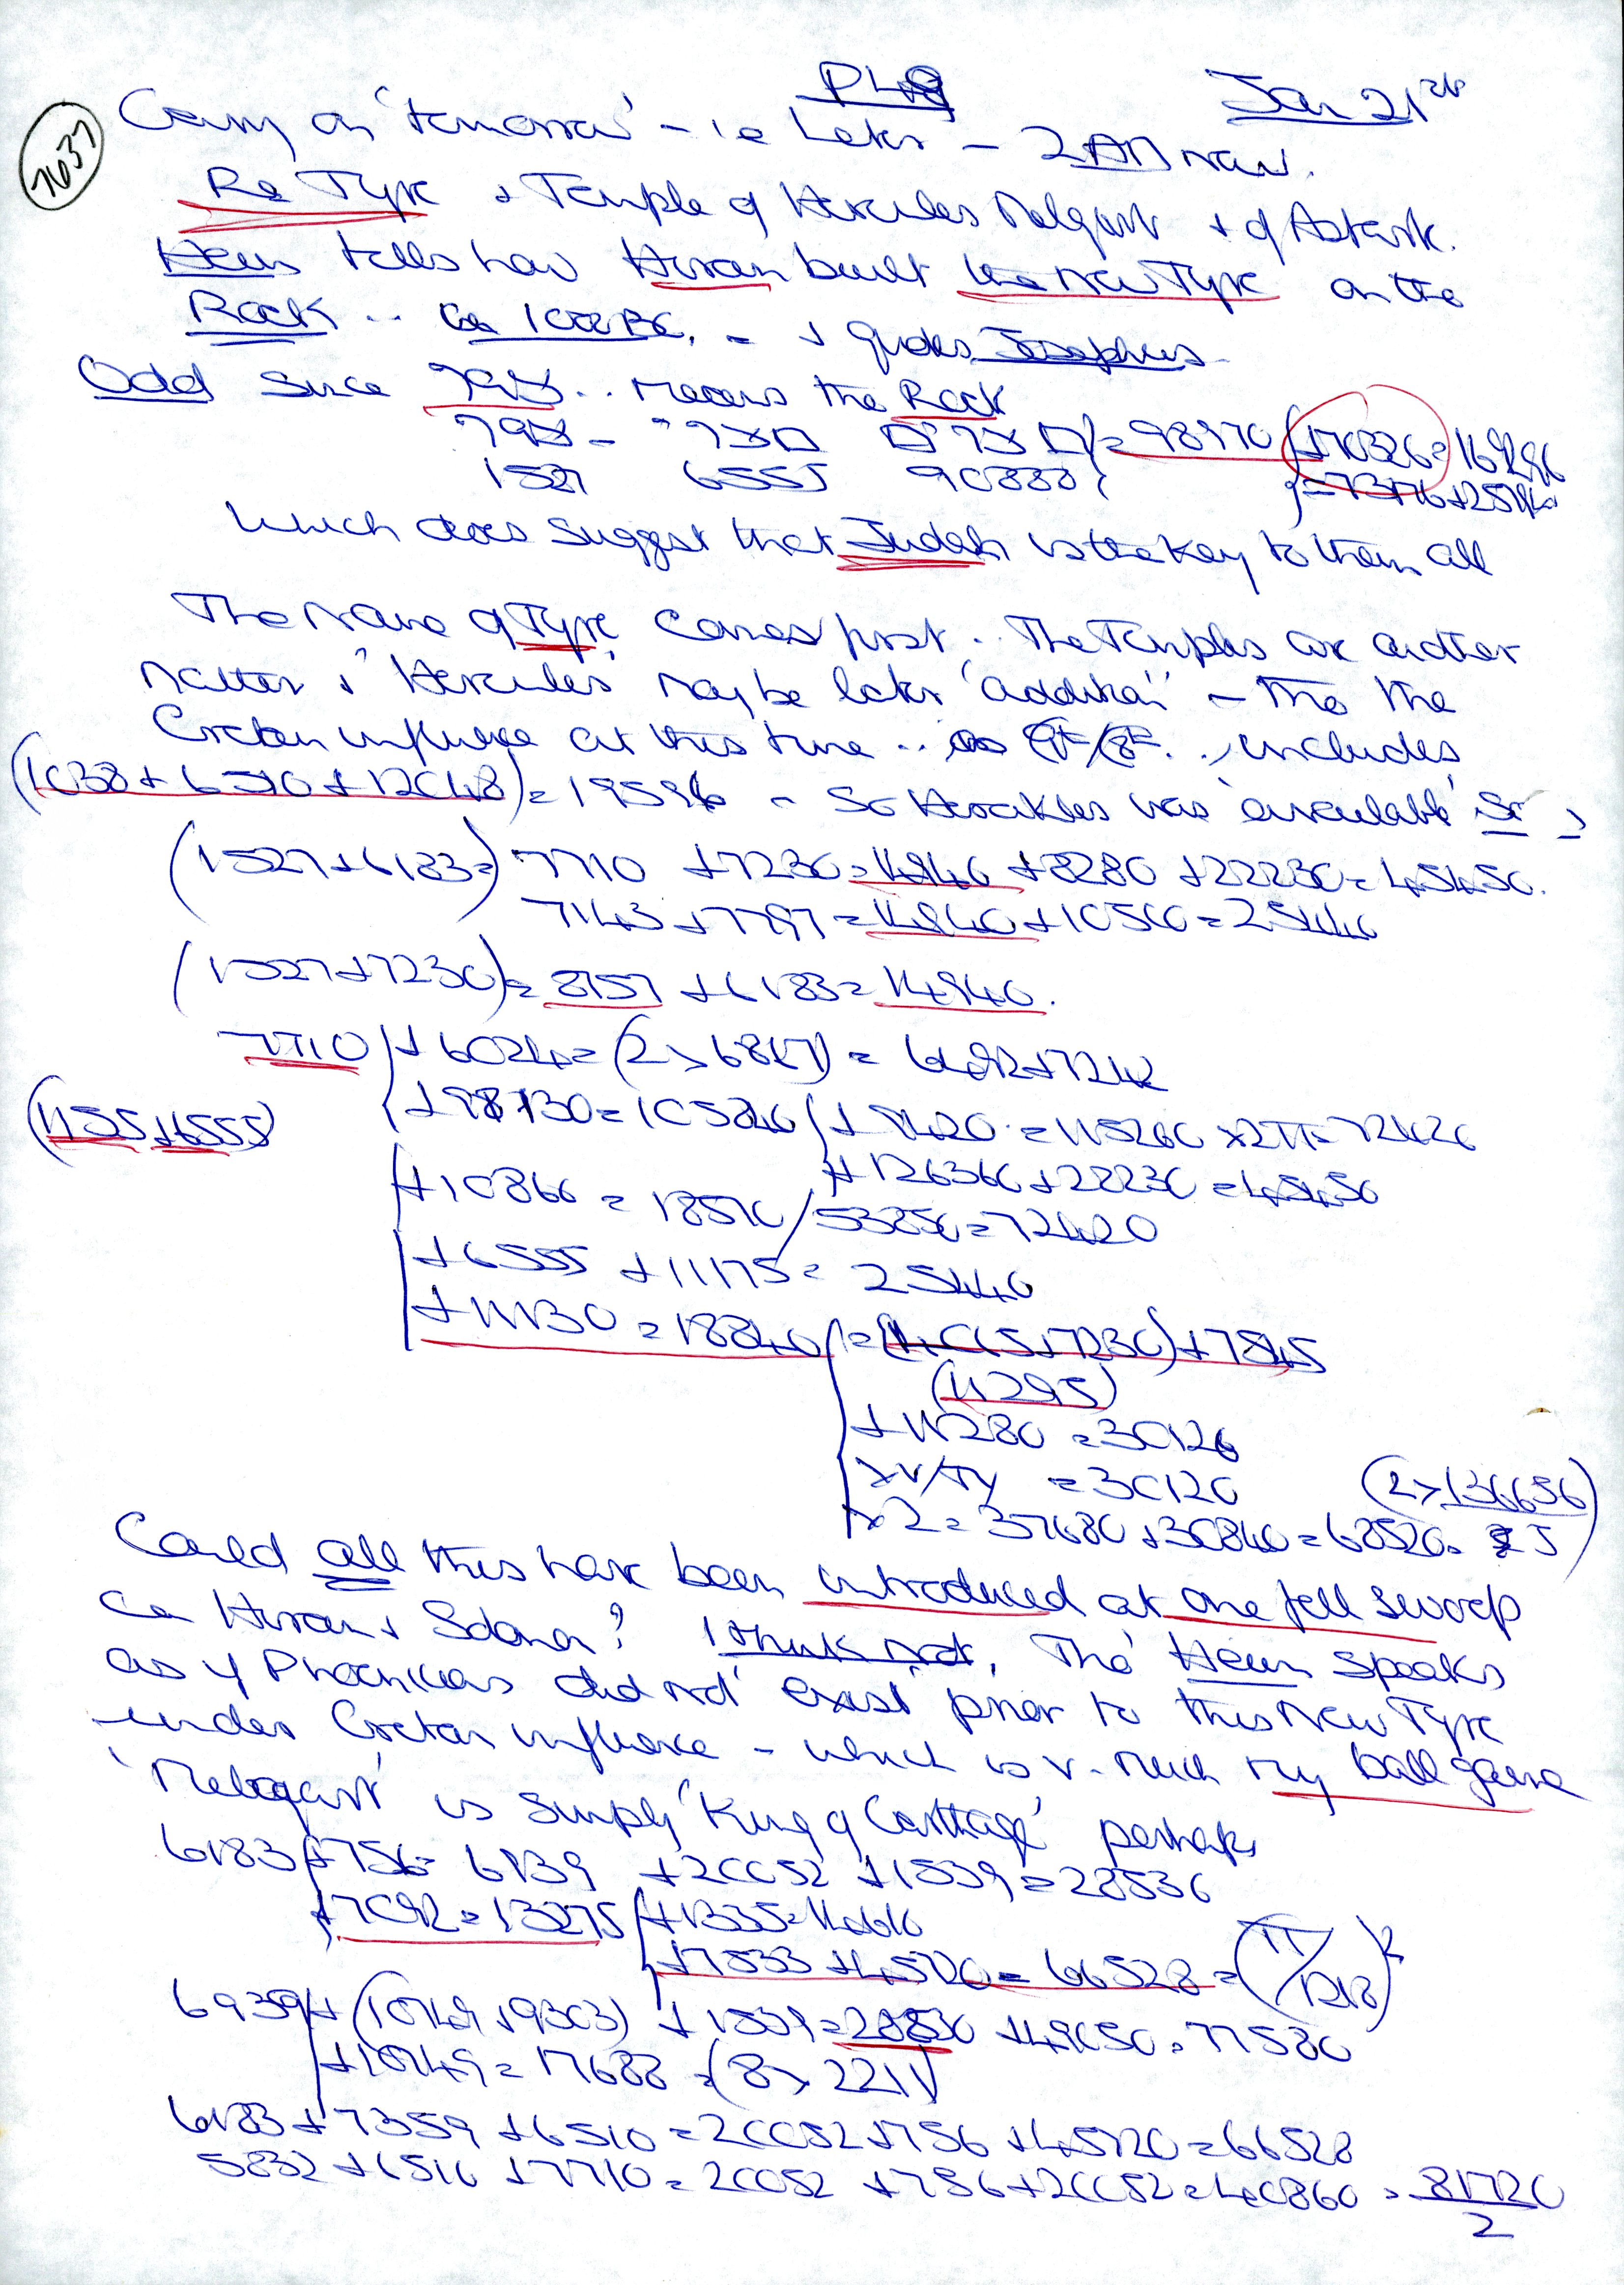 7637
Jan 21st
Carry on 'tomorrow' - ie Later - 2AM now.
Re Tyre + Temple of Hercules Melqart + of Astarte.
Heun tells how Hiram built the new Tyre on the
Rock .. Ca 1000 BC. - + quotes Josephus
Odd since צור .. means the Rock
= 98970
1527 6555 90888
which does suggest that Judah is the key to them all
The Name of Tyre comes first .. The Temples are another
matter + 'Hercules' may be later 'addition' - Tho the
Cretan influence at this time .. includes
(1038 + 6510 + 12048) = 19596 - So Herakles was 'available'
(1527 + 6183 =) 7710 + 7230 = 14940 + 8280 + 22230 = 45450.
7143 + 7797 = 14940 + 10500 = 25440
(1527 + 7230) = 8757 + 6183 = 14940.
7710 + 6024 = (2 x 6867) = 6492 + 7242
(1155 + 6555) + 98130 = 105840 + 9420 = 115260 x 2π = 72426
+ 10860 = 18570 / 53850 = 72420
+ 6555 + 11175 = 25440
+ 11130 = 18840 = (4065 + 7230) + 7545
(11295)
+ 11280 = 30120
= 30120
x 2 = 37680 + 30840 = 68520
Could all this have been introduced at one fell swoop
ca Hiram + Solomon? I think not, Tho' Heun speaks
as if Phoenicians did not exist prior to this New Tyre
under Cretan influence - which is v. much my ball game
'Melqart' is simply 'King of Carthage' perhaps
6183 + 756 = 6939 + 20052 + 1539 = 28530
+ 7092 = 13275 + 1335 = 14610
+ 7533 + 45720 = 66528
6939 + (10749 + 9303) + 1539 = 28530 + 49050 = 77580
+ 10749 = 17688 = (8 x 2211)
6183 + 7359 + 6510 = 20052 + 756 + 45720 = 66528
5832 + 6510 + 7710 = 20052 + 756 + 20052 = 40860 = 81720
2